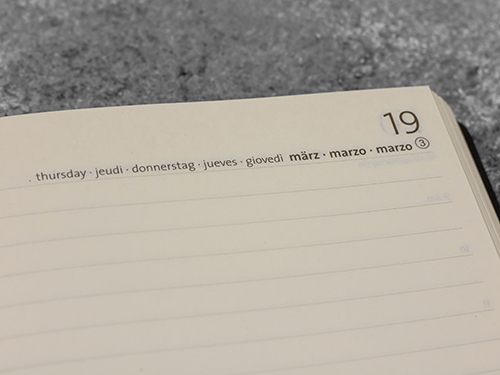 19
. thursday · jeudi · donnerstag · jueves · giovedì märz · marzo · marzo ③